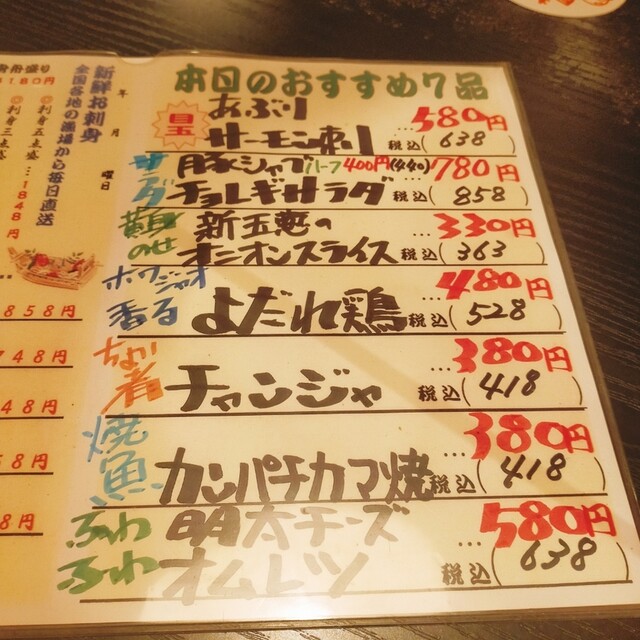 新鮮お刺身
全国各地の漁場から毎日直送
年 月 曜日
◎刺身五点盛…1848円
◎刺身三点盛
1180円
858円
748円
48円
8円
本日のおすすめ7品
目玉
あぶり
サーモン刺 …580円
税込(638)
サラダ
豚シャブ ハーフ400円(440) …780円
チョレギサラダ 税込(858)
黄身のせ
新玉葱の …330円
オニオンスライス 税込(363)
ホワジャオ香る
よだれ鶏 …480円
税込(528)
ちょい
チャンジャ …380円
税込(418)
焼魚
カンパチカマ焼 …380円
税込(418)
ふわふわ
明太チーズ …580円
オムレツ 税込(638)